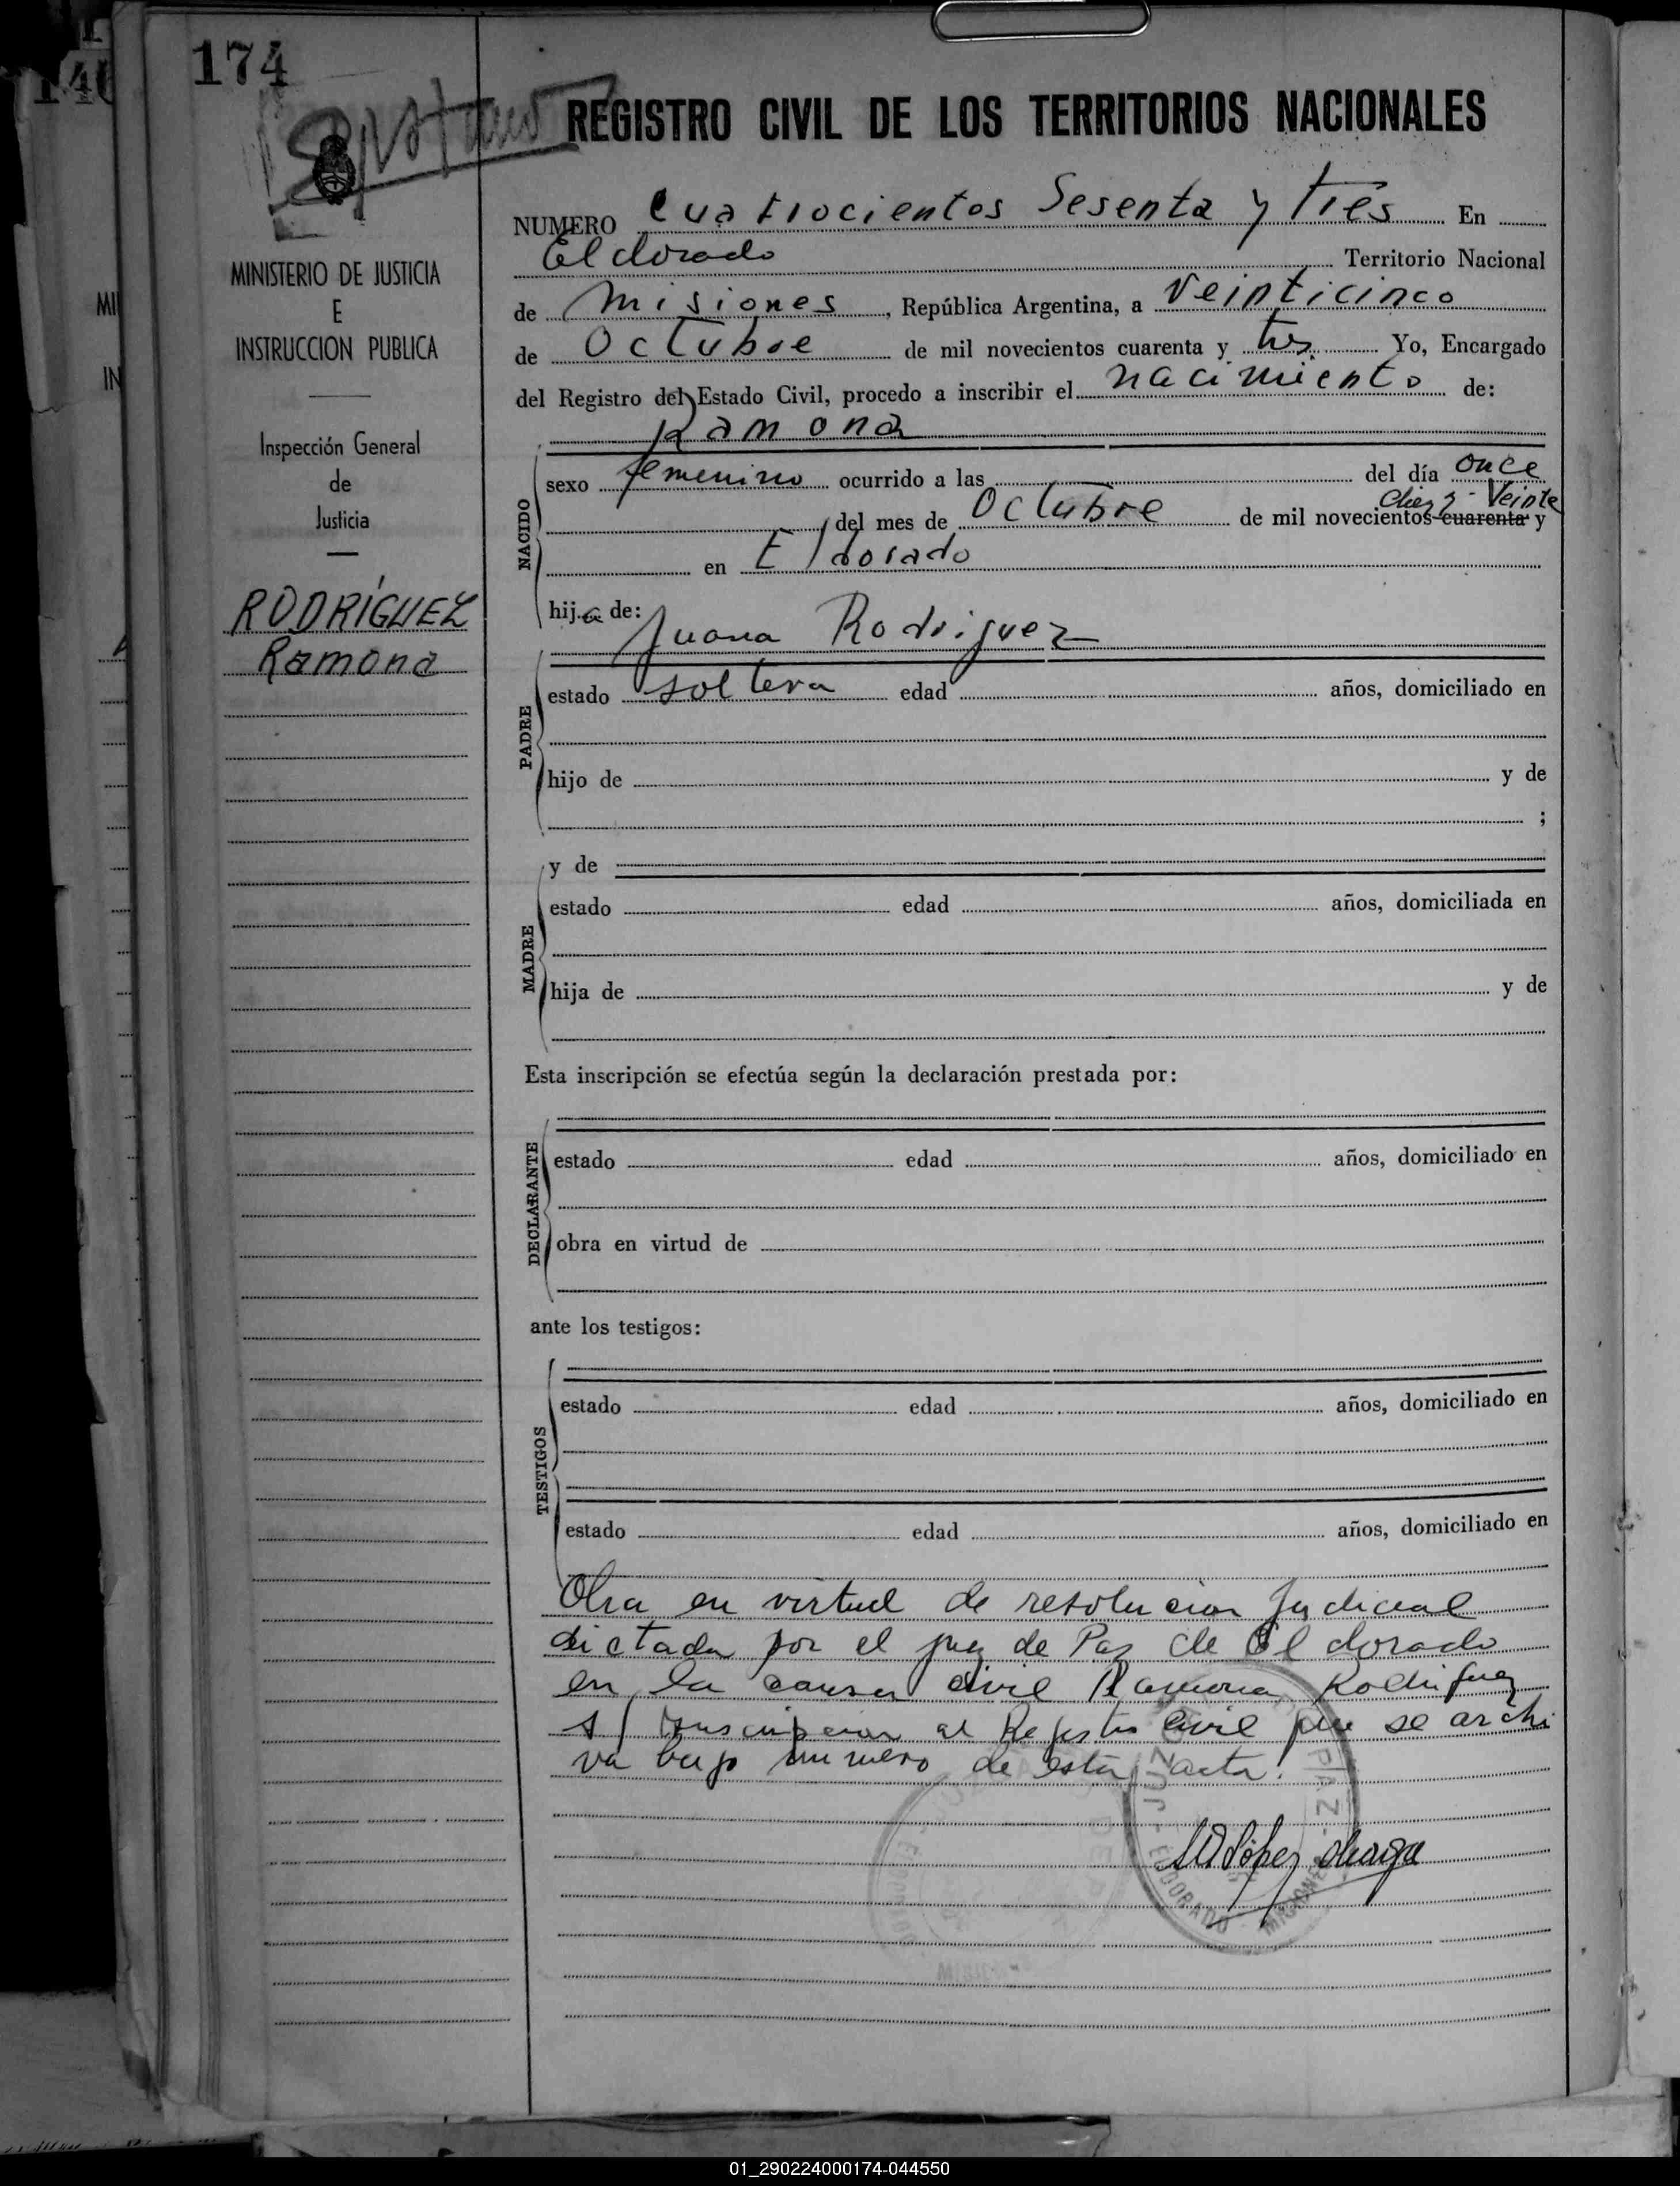 174
REGISTRO CIVIL DE LOS TERRITORIOS NACIONALES
MINISTERIO DE JUSTICIA
E
INSTRUCCION PUBLICA
Inspección General
de
Justicia
RODRÍGUEZ
Ramona
NUMERO Cuatrocientos Sesenta y Tres En
El dorado Territorio Nacional
de Misiones, República Argentina, a Veinticinco
de Octubre de mil novecientos cuarenta y tres Yo, Encargado
del Registro del Estado Civil, procedo a inscribir el nacimiento de:
Ramona
NACIDO
sexo femenino ocurrido a las del día once
del mes de Octubre de mil novecientos cuarenta y Veinte
en El dorado
hija de:
Juana Rodriguez
PADRE
estado soltera edad años, domiciliado en
hijo de y de
;
MADRE
y de
estado edad años, domiciliada en
hija de y de
Esta inscripción se efectúa según la declaración prestada por:
DECLARANTE
estado edad años, domiciliado en
obra en virtud de
ante los testigos:
TESTIGOS
estado edad años, domiciliado en
estado edad años, domiciliado en
Obra en virtud de resolucion Judicial
dictada por el juez de Paz de El dorado
en la causa civil Ramona Rodriguez
s/ inscripcion al Registro Civil que se archi
va bajo numero de esta acta.
JUZ PAZ - ELDORADO MISIONES
López
01_290224000174-044550